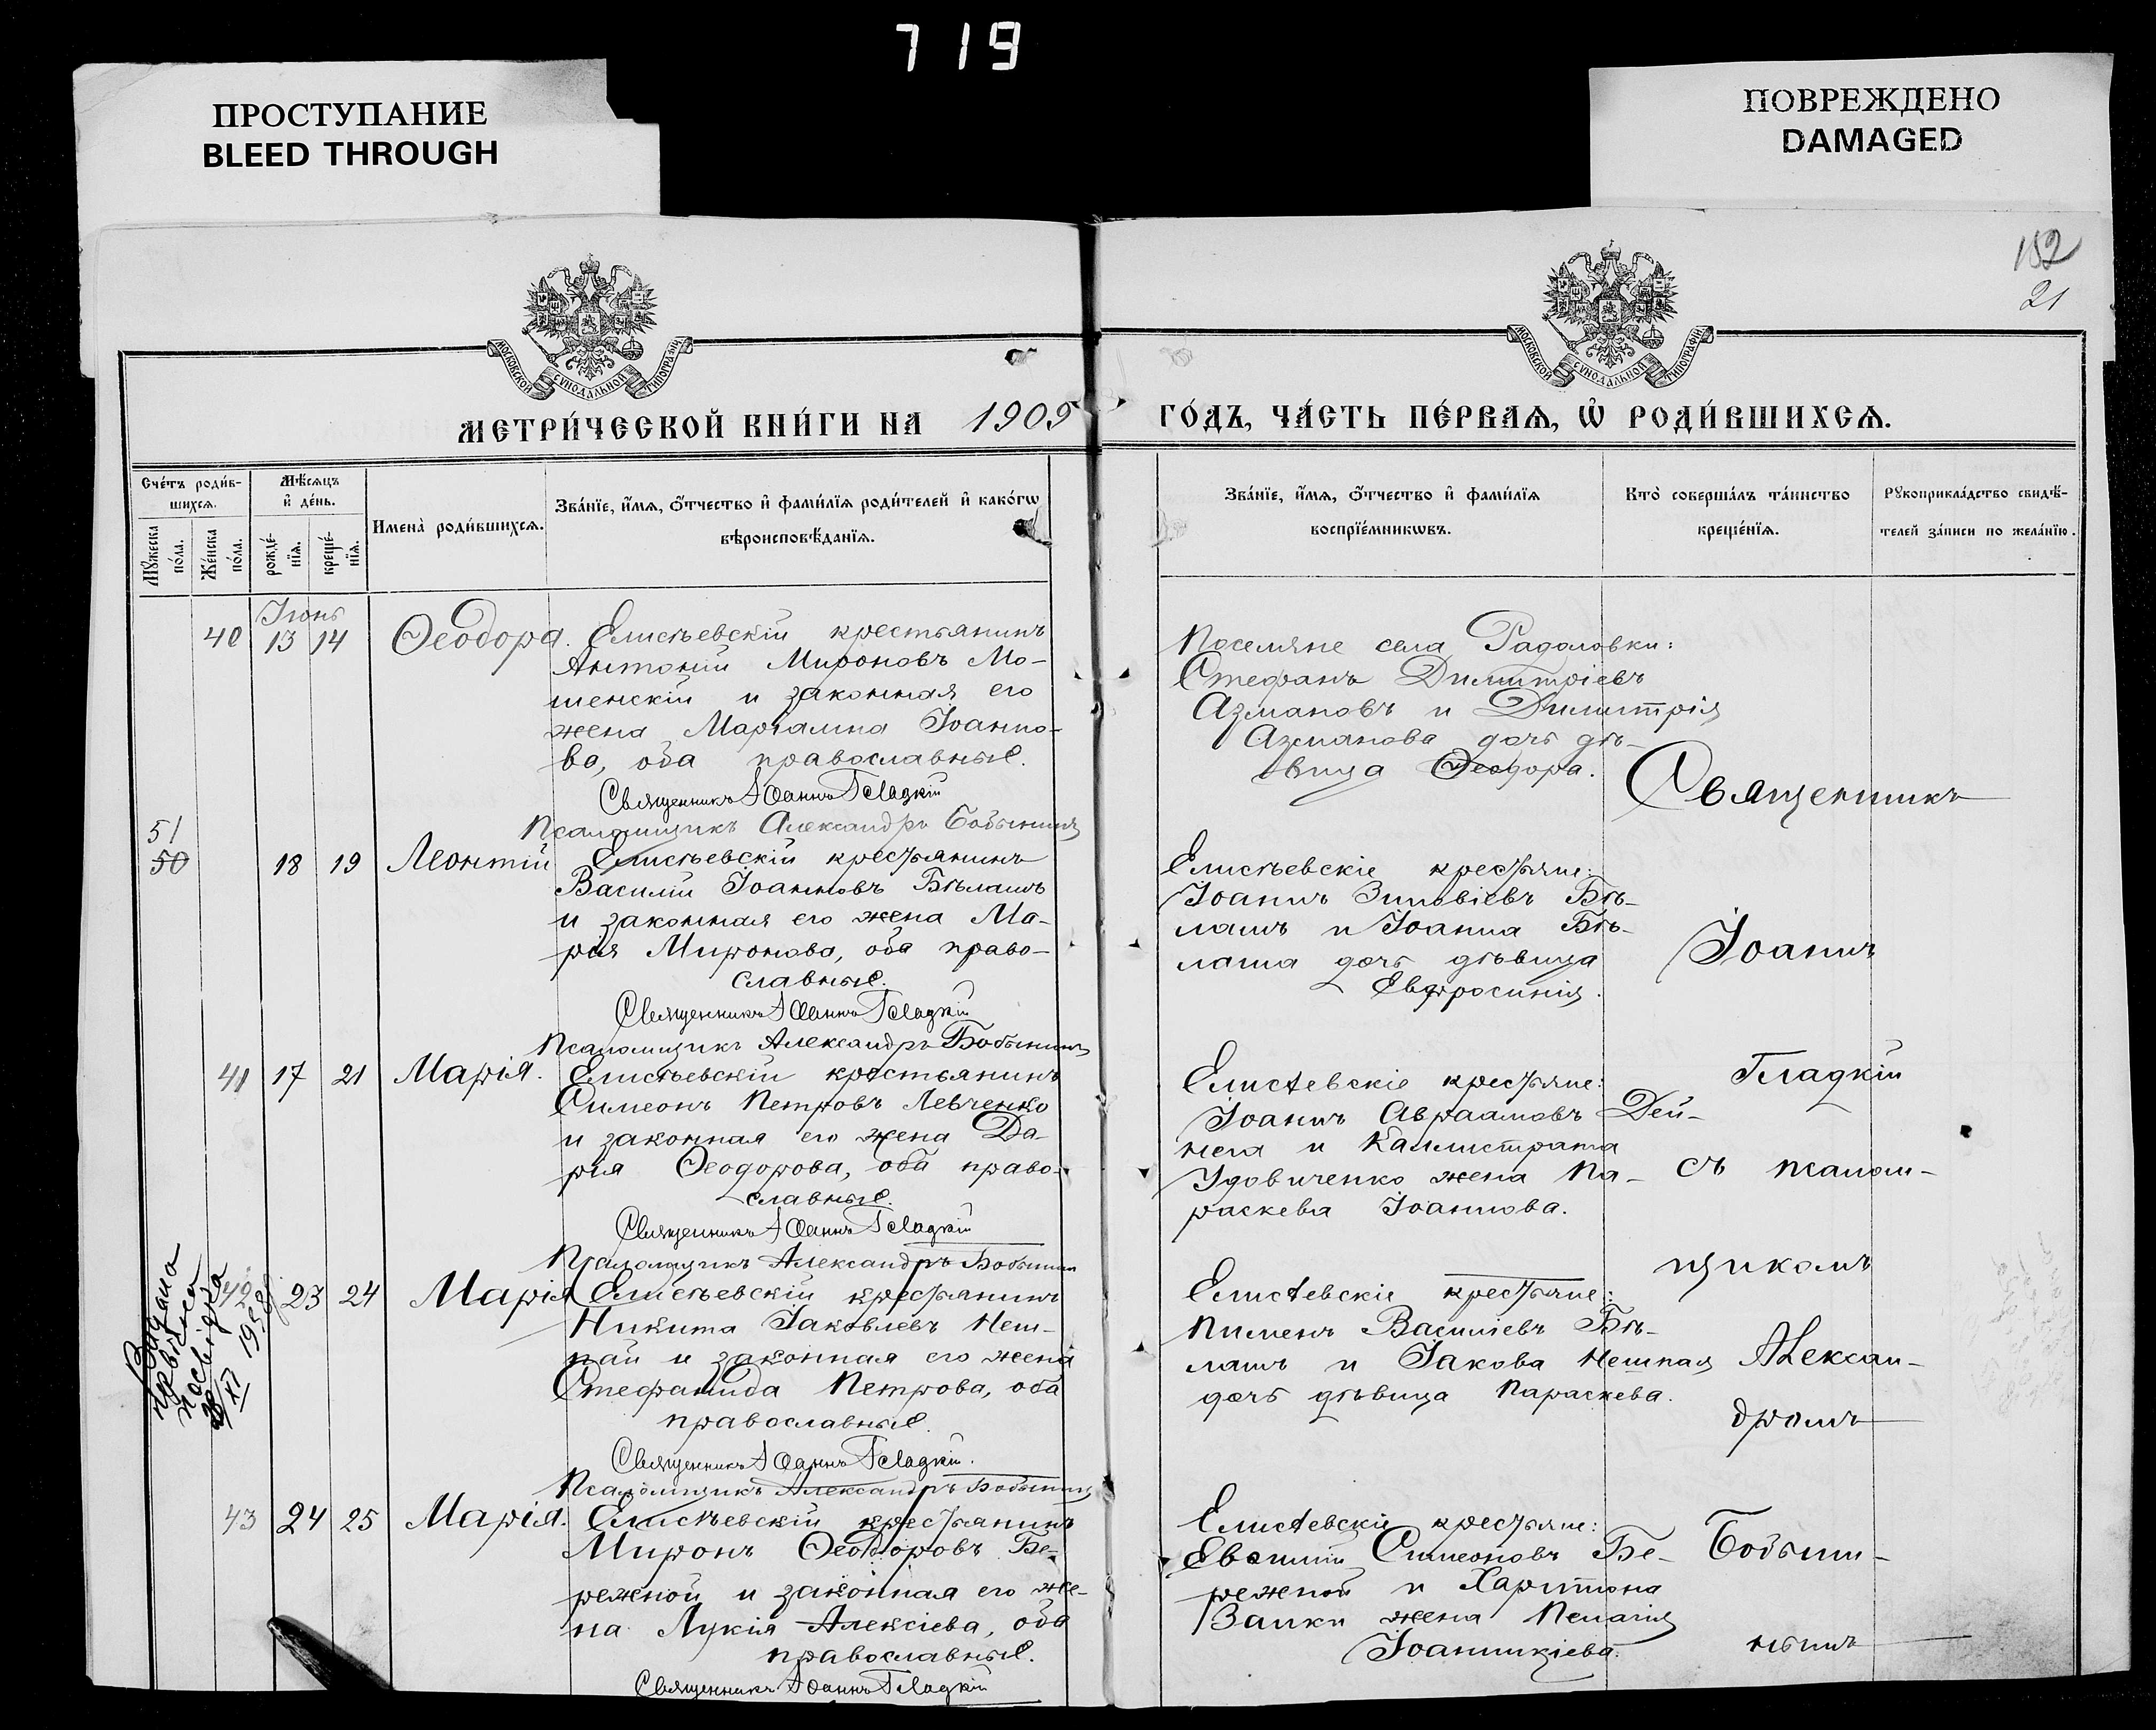 719
ПРОСТУПАНИЕ
BLEED THROUGH
ПОВРЕЖДЕНО
DAMAGED
152
21
МОСКОВСКОЙ СѴНОДАЛЬНОЙ ТИПОГРАФІИ
МОСКОВСКОЙ СѴНОДАЛЬНОЙ ТИПОГРАФІИ
МЕТРИ́ЧЕСКОЙ КНИ́ГИ НА 1909
ГО́ДЪ, ЧА́СТЬ ПЕ́РВАѦ, Ѡ҆ РОДИ́ВШИХСѦ.
Сче́тъ роди́в-
шихсѧ.
Мꙋ́жеска по́ла.
Же́нска по́ла.
Мѣ́сѧцъ
и҆ де́нь.
рожде́-
нїѧ.
креще́-
нїѧ.
Имена̀ роди́вшихсѧ.
Зва́нїе, и҆́мѧ, ѻ҆́тчество и҆ фами́лїѧ роди́телей и҆ како́гѡ
вѣроисповѣ́данїѧ.
Зва́нїе, и҆́мѧ, ѻ҆́тчество и҆ фами́лїѧ
воспрїе́мникѡвъ.
Кто̀ соверша́лъ та́инство
креще́нїѧ.
Рꙋкоприкла́дство свидѣ́-
телей за́писи по жела́нїю.
Іюнь
40 13 14 Ѳеодора. Елисѣевскій крестьянинъ
Антоній Мироновъ Мо-
шенскій и законная его
жена Маріамна Іоанно-
ва, оба православные.
Священникъ Іоаннъ Гладкій
Псаломщикъ Александръ Бобынинъ
Поселяне села Радоловки:
Стефанъ Димитріевъ
Азмановъ и Димитрія
Азманова дочь дѣ-
вица Ѳеодора.
Священникъ
51
50 18 19 Леонтій Елисѣевскій крестьянинъ
Василій Іоанновъ Бѣлашъ
и законная его жена Ма-
рія Миронова, оба право-
славные.
Священникъ Іоаннъ Гладкій
Псаломщикъ Александръ Бобынинъ
Елисѣевскіе крестьяне:
Іоаннъ Зиновіевъ Бѣ-
лашъ и Іоанна Бѣ-
лаша дочь дѣвица
Евфросинія.
Іоаннъ
41 17 21 Марія. Елисѣевскій крестьянинъ
Симеонъ Петровъ Левченко
и законная его жена Да-
рія Ѳеодорова, оба право-
славные.
Священникъ Іоаннъ Гладкій
Псаломщикъ Александръ Бобынинъ
Елисѣевскіе крестьяне:
Іоаннъ Авраамовъ Дей-
нега и Каллистрата
Удовиченко жена Па-
раскева Іоаннова.
Гладкій
съ псалом-
щикомъ
Видано
первісно
посвідка
28/XI 1958
42 23 24 Марія Елисѣевскій крестьянинъ
Никита Іаковлевъ Неш-
пай и законная его жена
Стефанида Петрова, оба
православные.
Священникъ Іоаннъ Гладкій.
Псаломщикъ Александръ Бобынинъ
Елисѣевскіе крестьяне:
Пименъ Василіевъ Бѣ-
лашъ и Іакова Нешпая
дочь дѣвица Параскева.
Алексан-
дромъ
43 24 25 Марія. Елисѣевскій крестьянинъ
Миронъ Ѳеодоровъ Бе-
режной и законная его же-
на Лукія Алексіева, оба
православные.
Священникъ Іоаннъ Гладкій
Елисѣевскіе крестьяне:
Евѳимій Симеоновъ Бе-
режной и Харитона
Заики жена Пелагія
Іоанникіева.
Бобыни-
нымъ